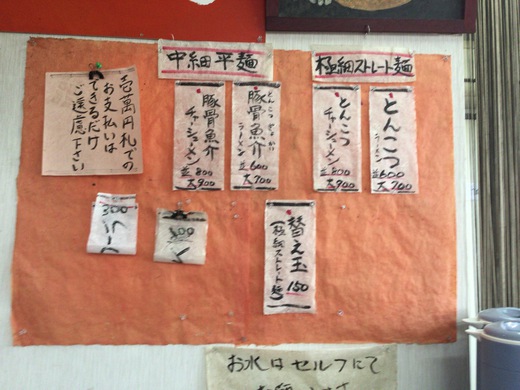 中細平麺
極細ストレート麺
壱萬円札での
お支払いは
できるだけ
ご遠慮下さい
とんこつ
ラーメン
並600
大700
とんこつ
チャーシューメン
並800
大900
とんこつ ぎょかい
豚骨魚介
ラーメン
並600
大700
豚骨魚介
チャーシューメン
並800
大900
替え玉 150
(極細ストレート麺)
300
300
お水はセルフにて